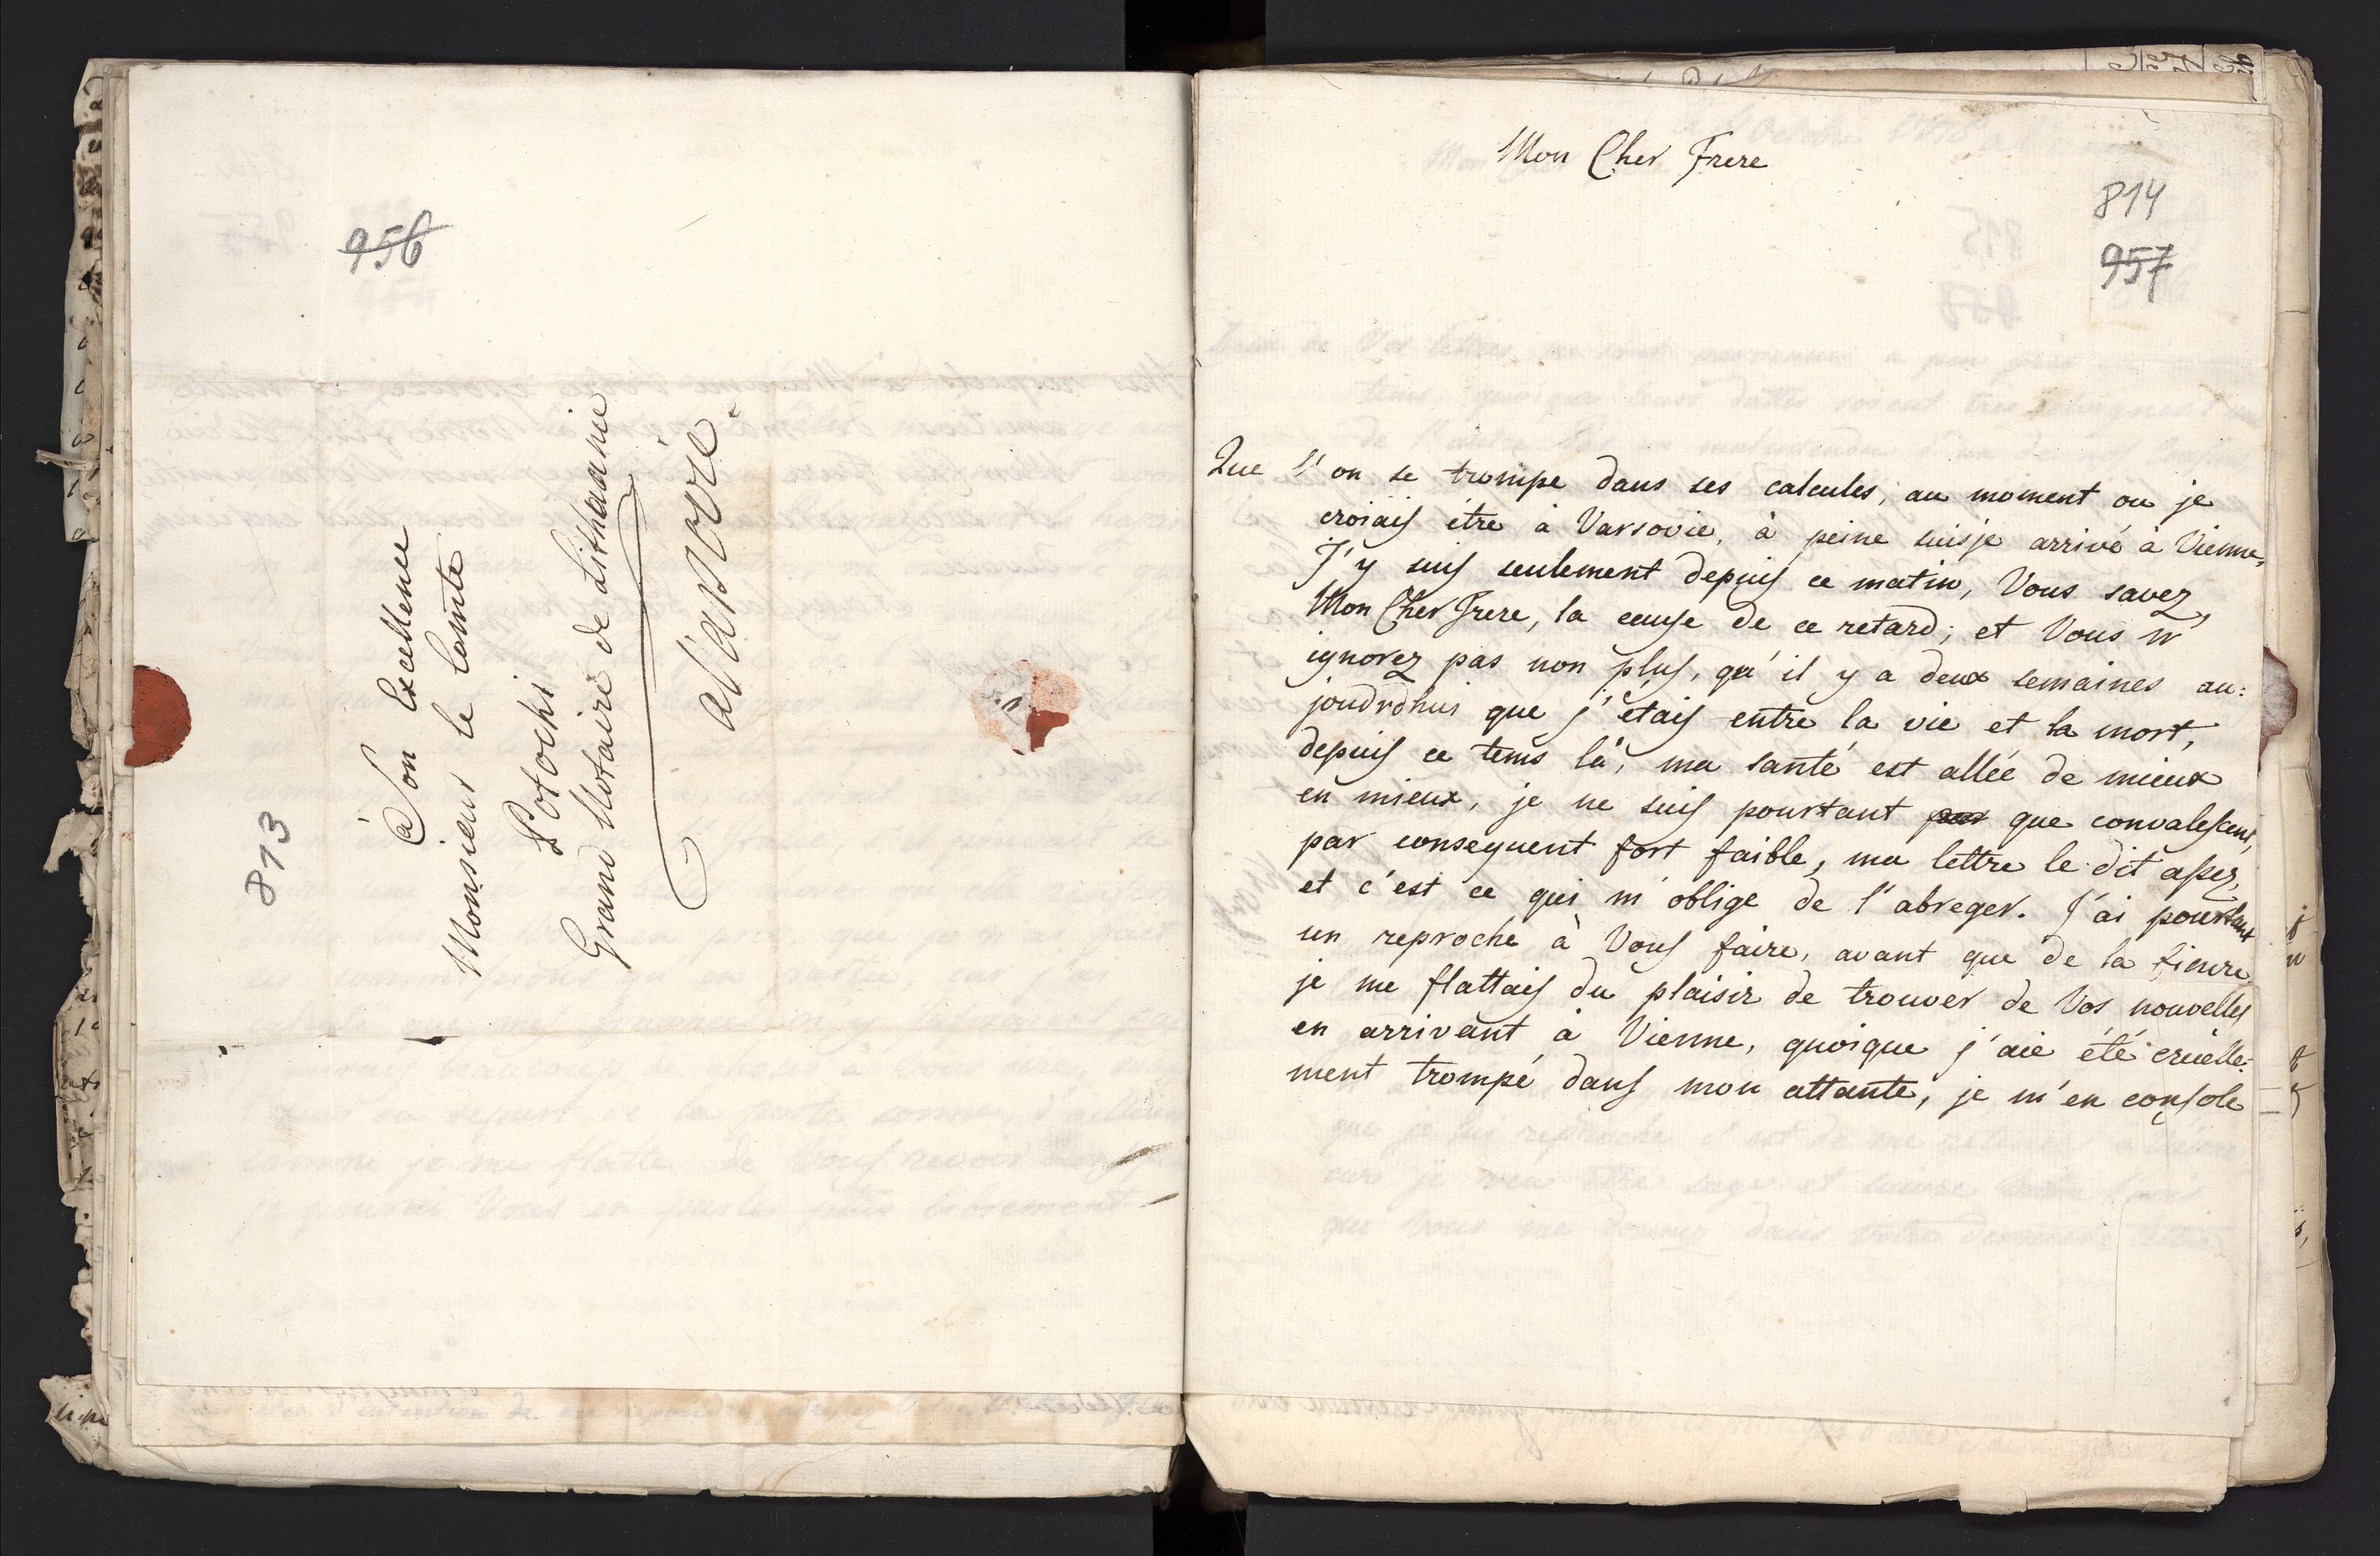 956
813
à Son Excellence
Monsieur le Comte
Potocki
Grand Notaire de Lithuanie
à Varsovie
Mon Cher Frere
814
957
Que l'on se trompe dans ses calcules, au moment ou je
croiais être à Varsovie, à peine suisje arrivé à Vienne,
J'y suis seulement depuis ce matin, Vous savez,
Mon Cher Frere, la cause de ce retard; et Vous n'
ignorez pas non plus, qu'il y a deux semaines au:
joudrdhui que j'étais entre la vie et la mort,
depuis ce tems là, ma santé est allée de mieux
en mieux, je ne suis pourtant pas que convalescent,
par consequent fort faible, ma lettre le dit assez,
et c'est ce qui m'oblige de l'abreger. J'ai pourtant
un reproche à Vous faire, avant que de la finire,
je me flattais du plaisir de trouver de Vos nouvelles
en arrivant à Vienne, quoique j'aie été cruelle:
ment trompé dans mon attante, je m'en console